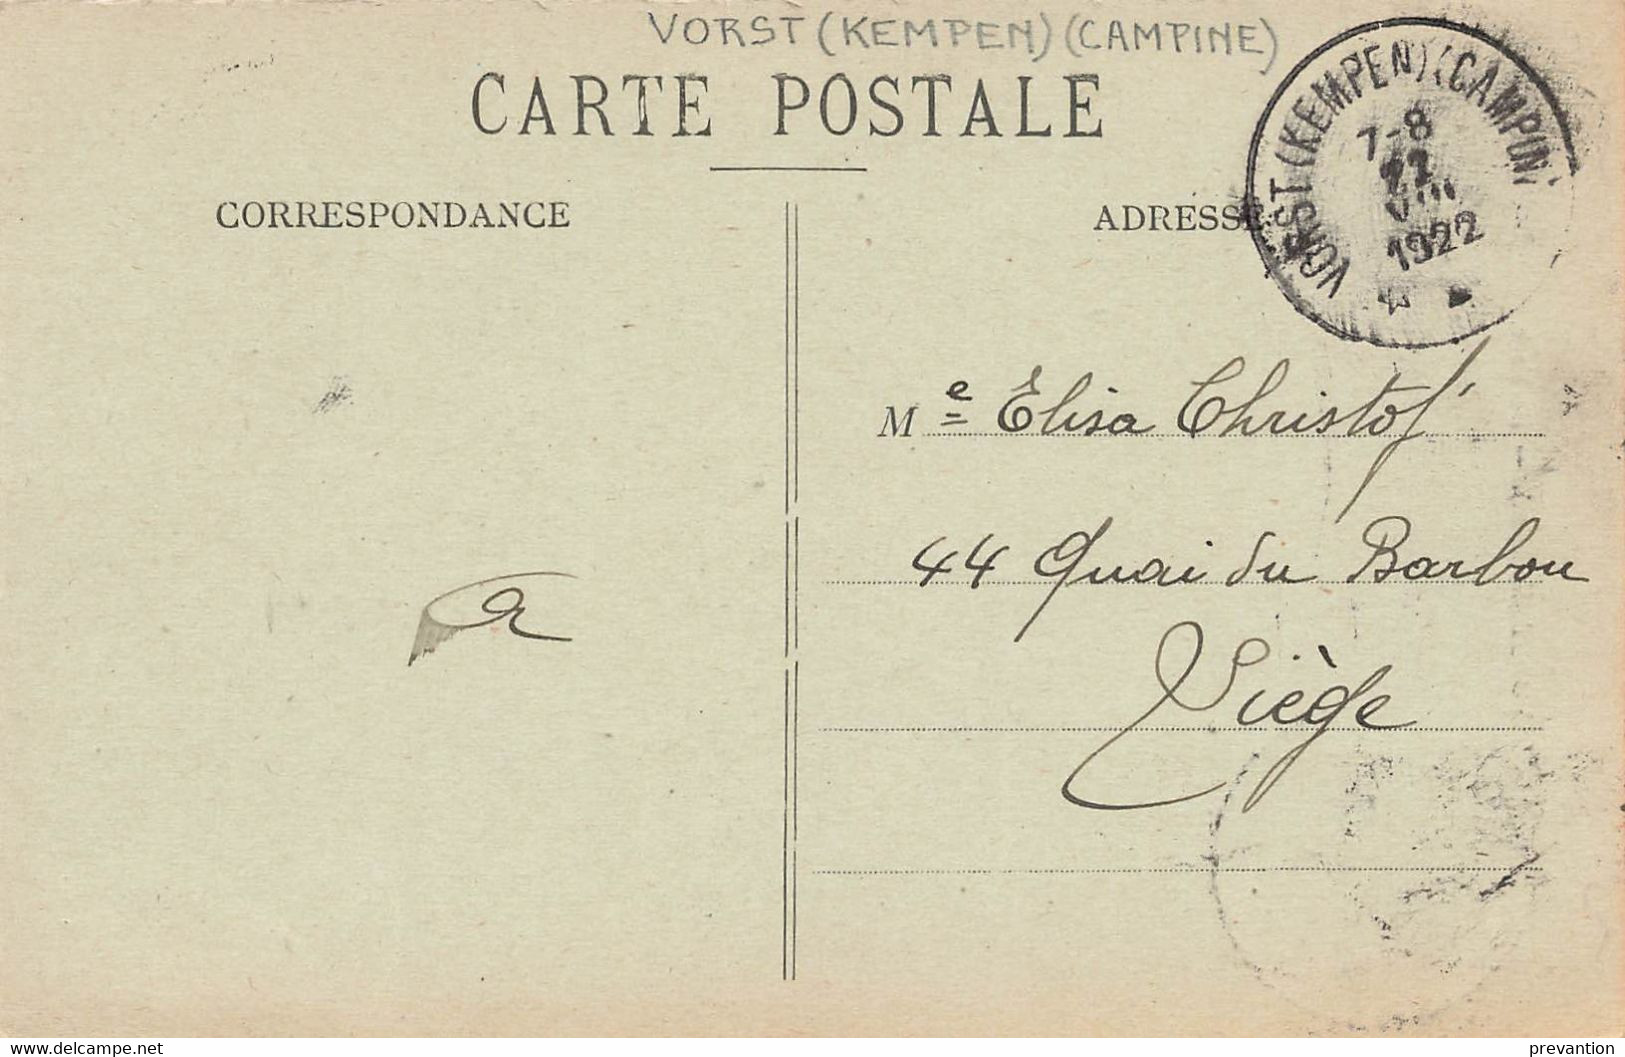 VORST (KEMPEN) (CAMPINE)
CARTE POSTALE
VORST (KEMPEN) (CAMPIN
7-8
VIII
1922
CORRESPONDANCE
ADRESSE
Me Elisa Christof
44 Quai du Barbou
Liège
www.delcampe.net
prevantion